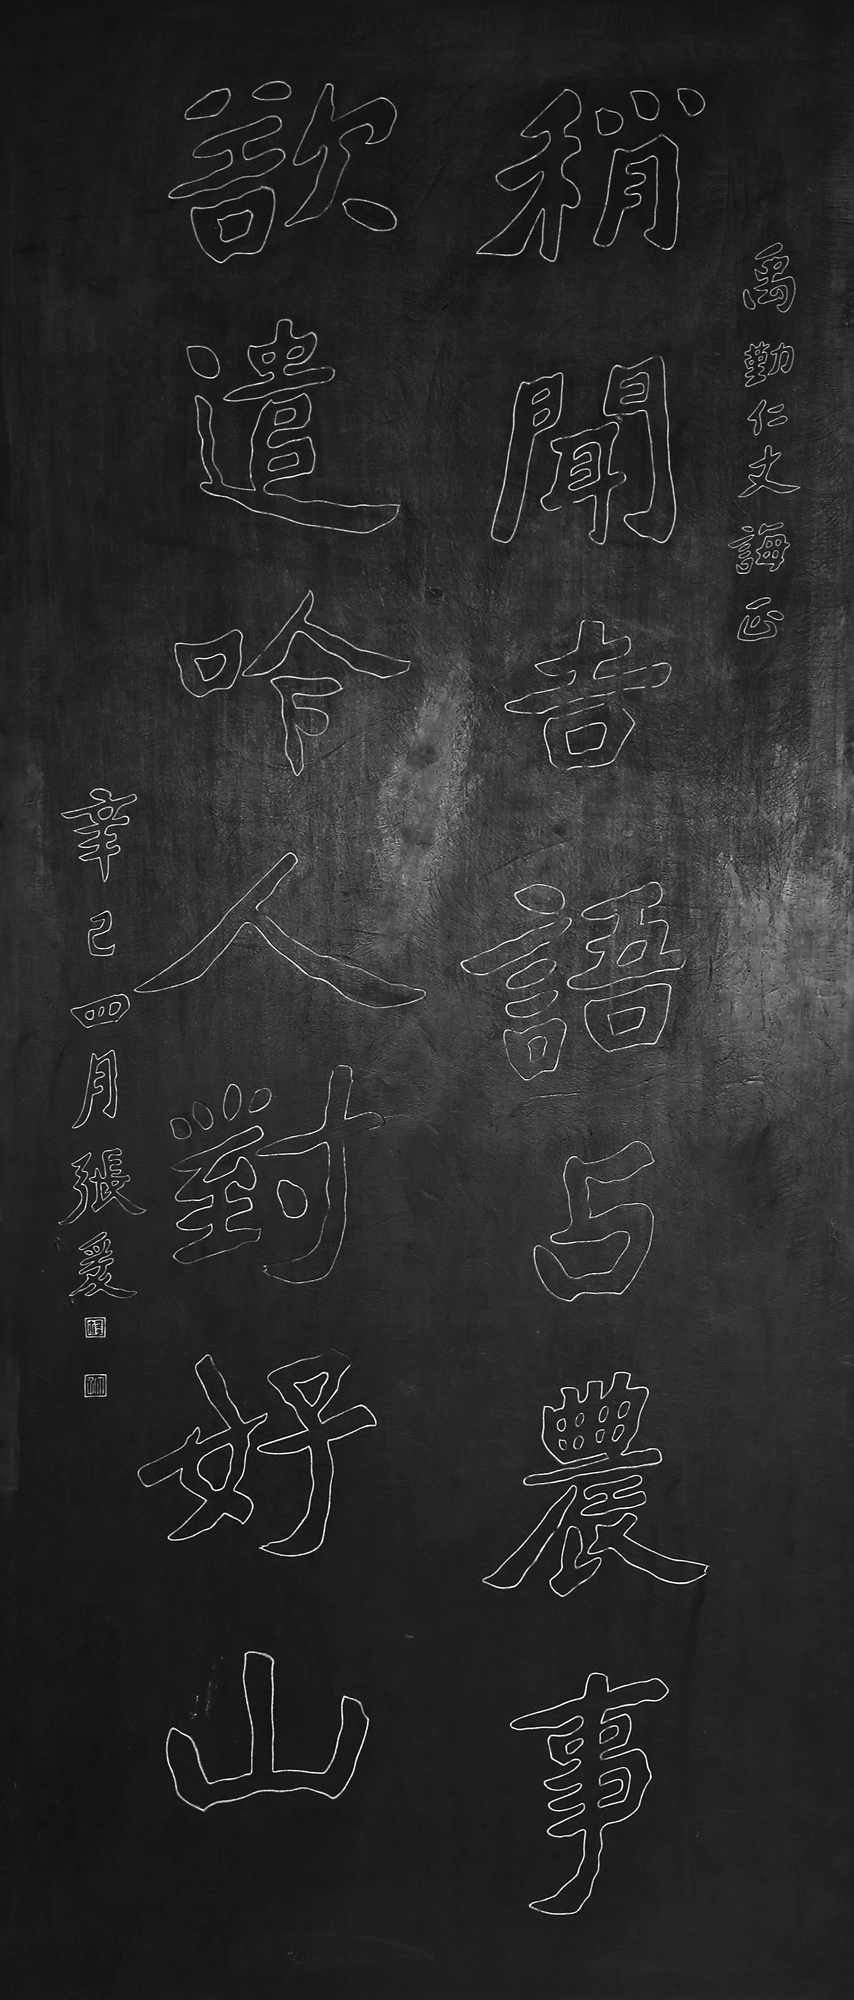 禹勤仁丈誨正
稍聞吉語占農事
欲遣吟人對好山
辛巳四月張爰